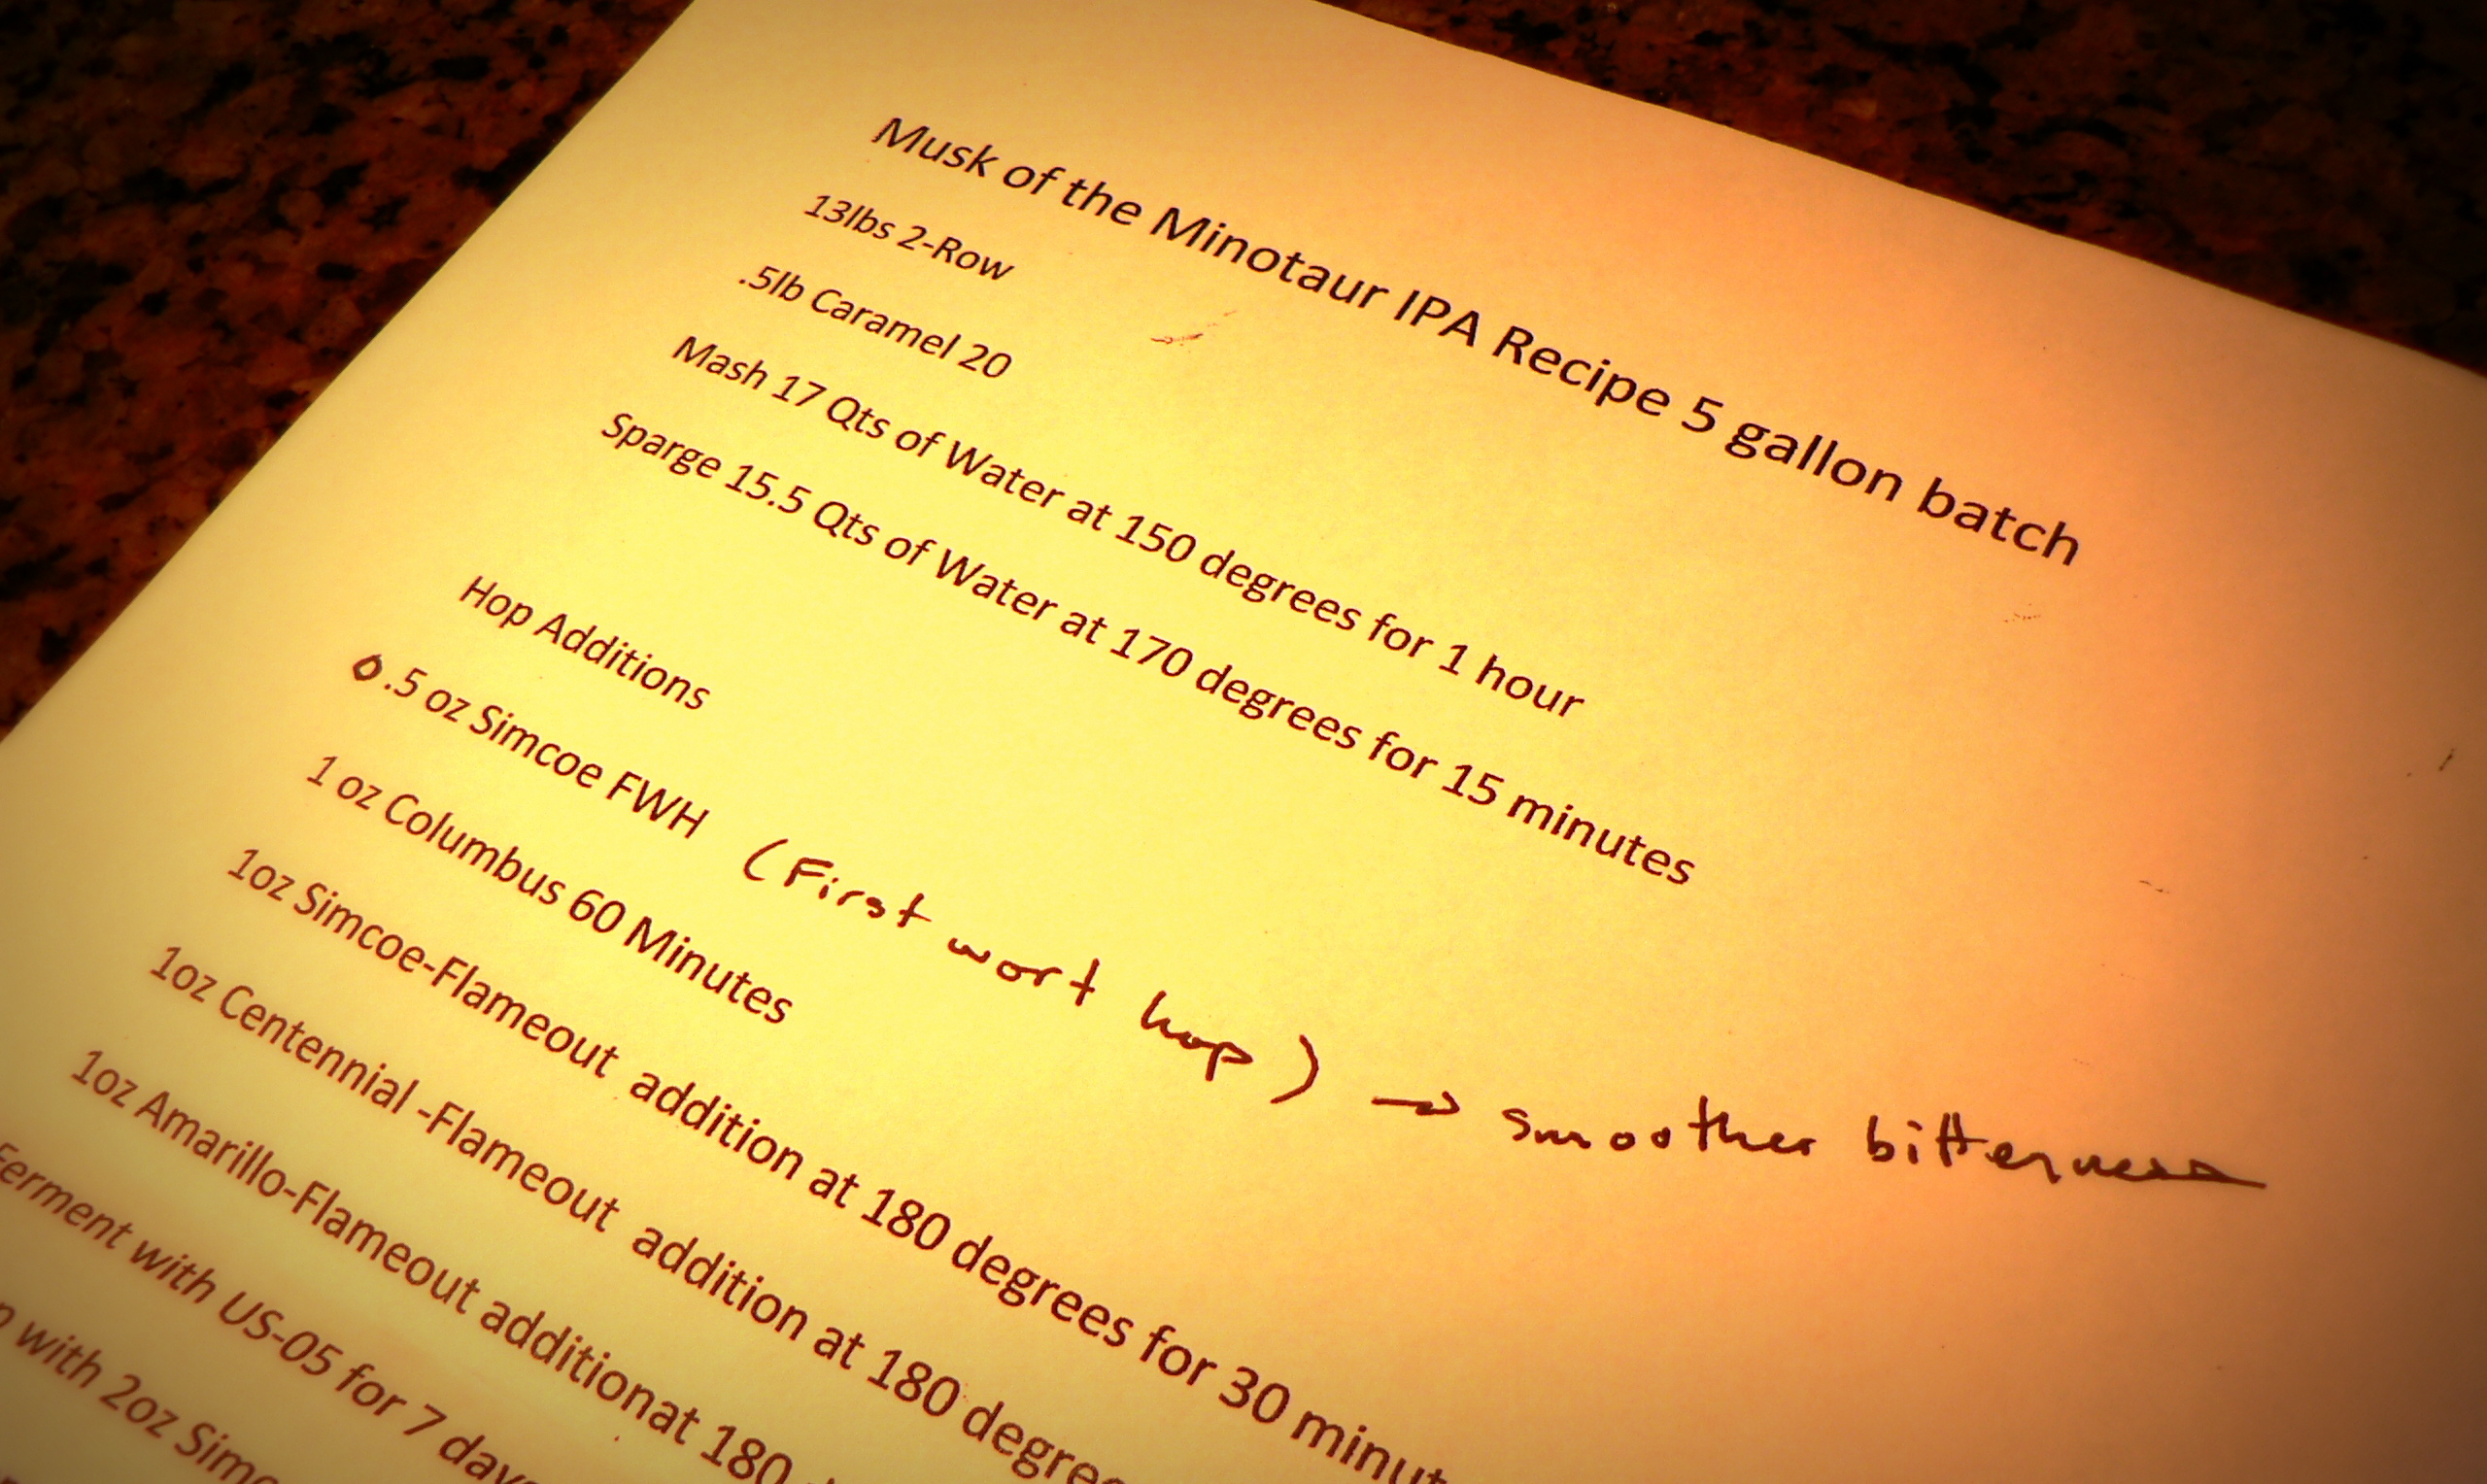 Musk of the Minotaur IPA Recipe 5 gallon batch
13lbs 2-Row
.5lb Caramel 20
Mash 17 Qts of Water at 150 degrees for 1 hour
Sparge 15.5 Qts of Water at 170 degrees for 15 minutes
Hop Additions
0.5 oz Simcoe FWH (First wort hop) → smoother bitterness
1 oz Columbus 60 Minutes
1oz Simcoe-Flameout addition at 180 degrees for 30
1oz Centennial -Flameout addition at 180
1oz Amarillo-Flameout additionat 180
Ferment with US-05 for 7 days
with 2oz